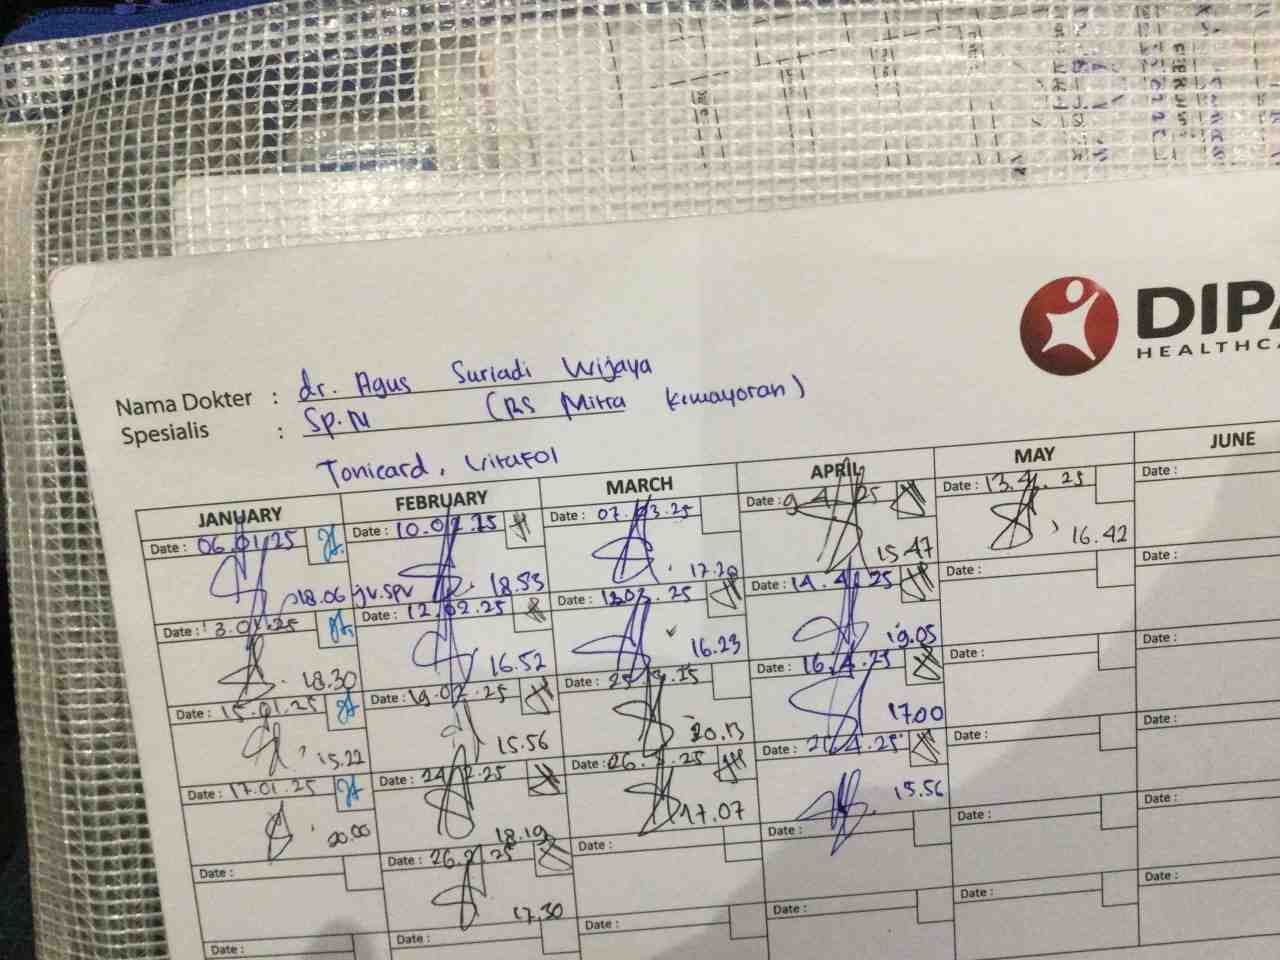 DIPA
HEALTHCA
Nama Dokter : dr. Agus Suriadi Wijaya
Spesialis : Sp.N (RS Mitra Kemayoran)
Tonicard, Vitafol
JANUARY FEBRUARY MARCH APRIL MAY JUNE
Date : 06.01.25 Date : 10.02.25 Date : 07.03.25 Date : 9.4.25 Date : 13.5.25 Date :
18.06 jv.spv 18.53 17.20 15.47 16.42
Date : 13.01.25 Date : 12.02.25 Date : 12.03.25 Date : 14.4.25 Date : Date :
18.30 16.52 16.23 19.05
Date : 15.01.25 Date : 19.02.25 Date : 25 Date : 16.4.25 Date : Date :
15.22 15.56 20.13 17.00
Date : 17.01.25 Date : 24.2.25 Date : 26.3.25 Date : 21.4.25 Date : Date :
20.00 18.19 17.07 15.56
Date : Date : 26.2.25 Date : Date : Date : Date :
17.30
Date : Date : Date : Date : Date : Date :